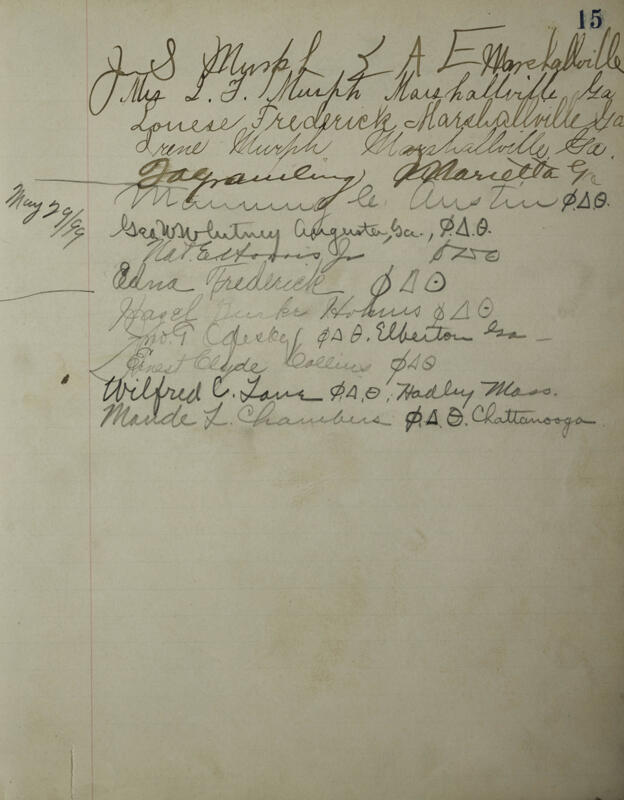 15
J S Murph Σ A E Marshallville
Mrs L. F. Murph Marshallville Ga
Louese Frederick Marshallville Ga
Irene Murph Marshallville, Ga.
Marietta Ga
May 29/99
Manning C. Austin ΦΔΘ.
Geo W Whitney Augusta, Ga., Φ.Δ.Θ.
Nat E Harris Jr ΦΔΘ
Edna Frederick ΦΔΘ
Hazel Holmes ΦΔΘ
Jno. T ΦΔΘ. Elberton Ga –
Ernest Clyde Collins ΦΔΘ
Wilfred C. Lane Φ.Δ.Θ., Hadley Mass.
Maude L. Chambers Φ.Δ.Θ. Chattanooga